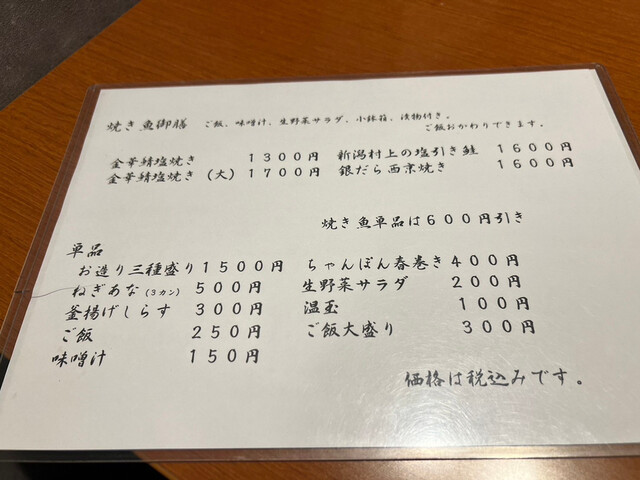 焼き魚御膳 ご飯、味噌汁、生野菜サラダ、小鉢箱、漬物付き。
ご飯おかわりできます。
金華鯖塩焼き 1300円 新潟村上の塩引き鮭 1600円
金華鯖塩焼き(大) 1700円 銀だら西京焼き 1600円
焼き魚単品は600円引き
単品
お造り三種盛り 1500円 ちゃんぽん春巻き 400円
ねぎあな(3カン) 500円 生野菜サラダ 200円
釜揚げしらす 300円 温玉 100円
ご飯 250円 ご飯大盛り 300円
味噌汁 150円
価格は税込みです。